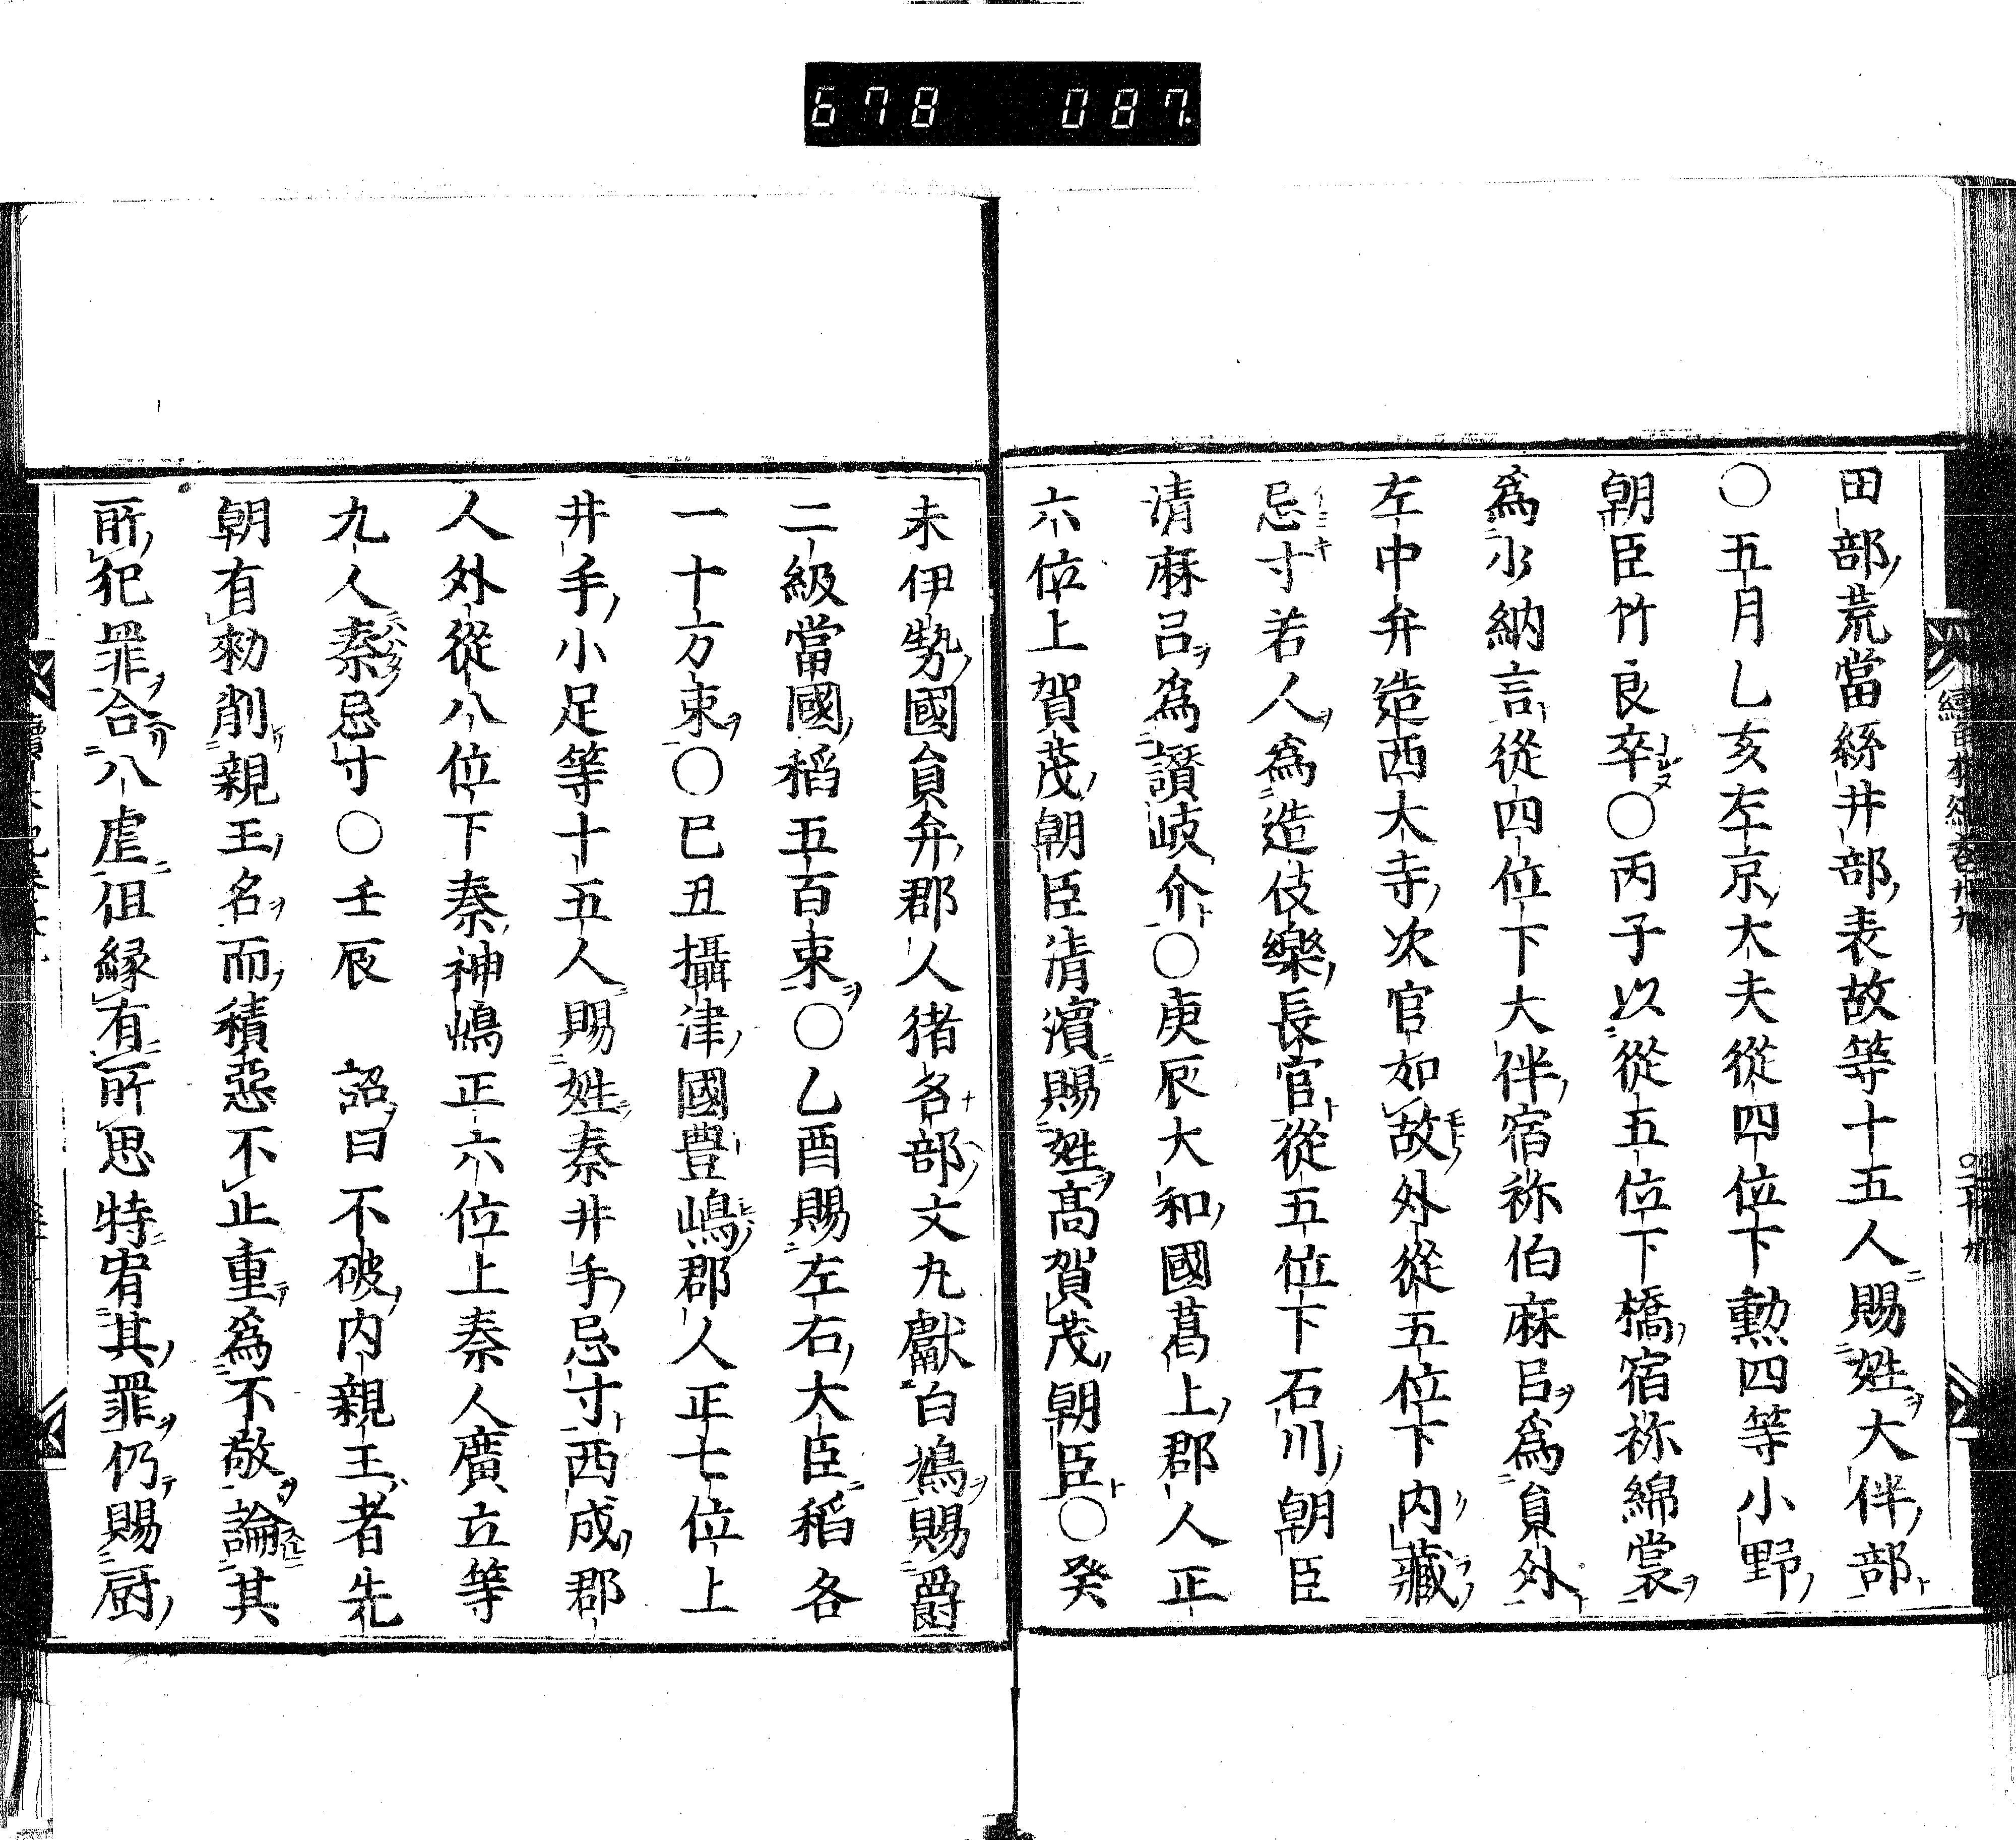 678 087
田部荒當絲井部表故等十五人賜姓大伴部
〇五月乙亥左京大夫從四位下勲四等小野
朝臣竹良卒〇丙子以從五位下橋宿祢綿裳
為水納言從四位下大伴宿祢伯麻呂為員外
左中弁造西大寺次官如故外從五位下内藏
忌寸若人為造伎樂長官從五位下石川朝臣
清麻呂為讃岐介〇庚辰大和國葛上郡人正
六位上賀茂朝臣清濱賜姓髙賀茂朝臣〇癸
未伊勢國員弁郡人猪名部文九獻白鳩賜爵
二級當國稻五百束〇乙酉賜左右大臣稻各
一十万束〇巳丑攝津國豊嶋郡人正七位上
井手小足等十五人賜姓秦井手忌寸西成郡
人外從八位下秦神嶋正六位上秦人廣立等
九人秦忌寸〇壬辰 詔曰不破内親王者先
朝有勅削親王名而積惡不止重為不敬論其
所犯罪合八虐但縁有所思特宥其罪仍賜厨